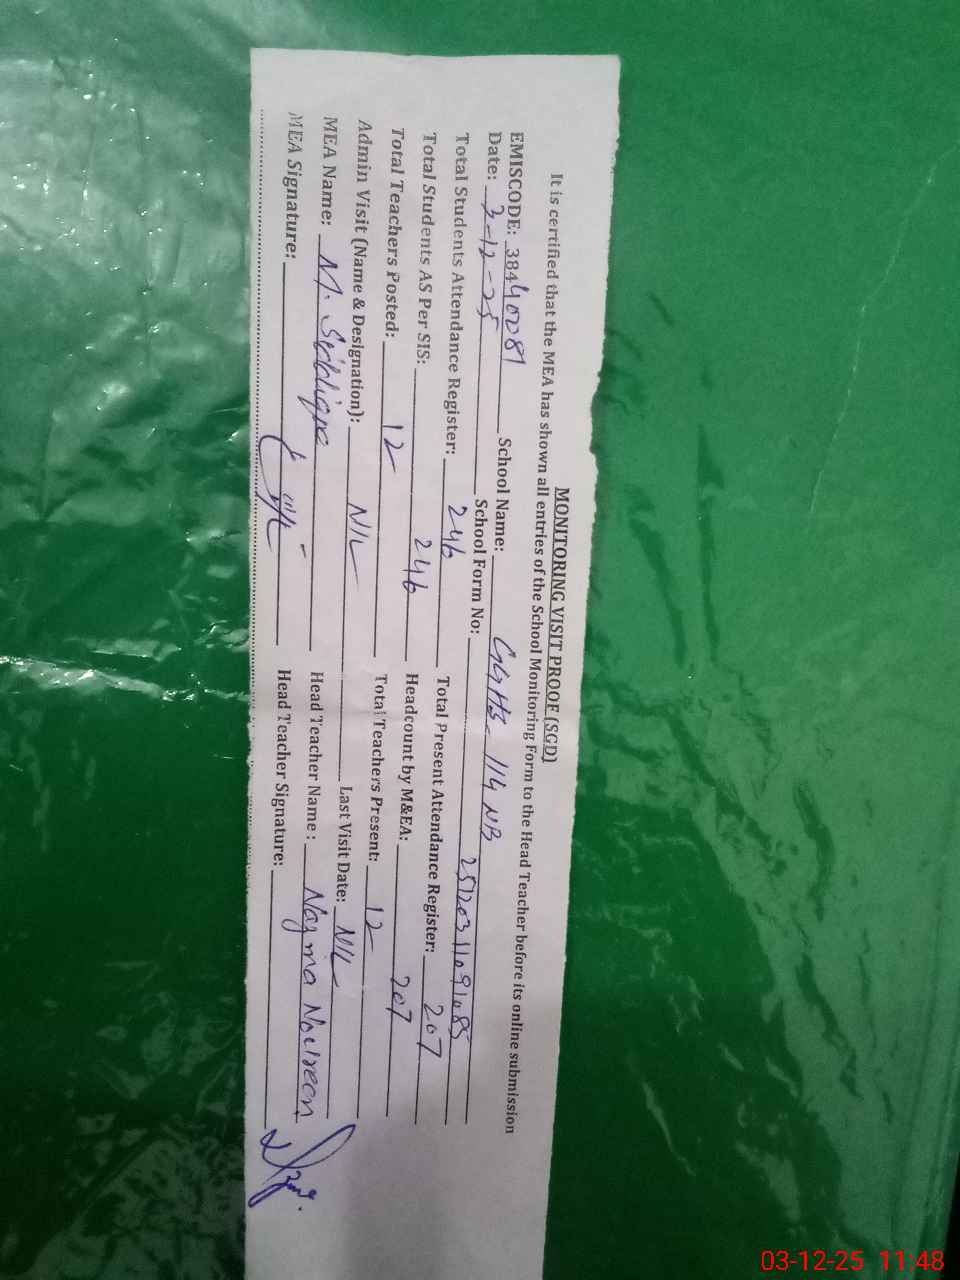 MONITORING VISIT PROOF (SGD)
It is certified that the MEA has shown all entries of the School Monitoring Form to the Head Teacher before its online submission
EMISCODE: 38440081 School Name: GGHS 114 NB
Date: 3-12-25 School Form No: 25120311091085
Total Students Attendance Register: 246 Total Present Attendance Register: 207
Total Students AS Per SIS: 246 Headcount by M&EA: 207
Total Teachers Posted: 12 Total Teachers Present: 12
Admin Visit (Name & Designation): NIL Last Visit Date: NIL
MEA Name: M. Siddique Head Teacher Name : Nagma Noureen
MEA Signature: Head Teacher Signature:
03-12-25 11:48